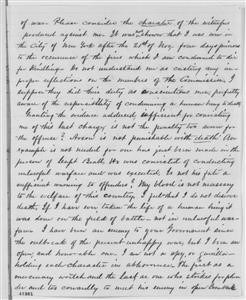 of war. Please consider the character of the witnesses
produced against me. It was shown that I was not in
the City of New York after the 21st of Nov. four days previous
to the occurrence of the fires which I am condemned to die
for kindling. Do not understand me as casting any im-
proper reflections on the members of the Commission, I
suppose they did their duty as conscientious men perfectly
aware of the responsibility of condemning a human being to death
Granting the evidence adduced sufficient for convicting
me of this last charge is not the penalty too severe for
the offense? Arson is not punishable with death. An
example is not needed for one has just been made in the
person of Capt Beall. He was convicted of conducting
unlawful warfare and was executed. Is not his fate a
sufficient warning to offenders? My blood is not necessary
to the welfare of this country. I feel that I do not deserve
death. If I have ever taken the life of a human being it
was done on the field of battle - not in unlawful war-
fare. I have been an enemy to your Government since
the outbreak of the present unhappy war but I have been an
open and honorable one. I am not a spy, or guerilla
holding each character in abhorrence. The first as a
mercenary wretch and the last as one who strikes for plun-
der and too cowardly to meet his enemy in open
41981